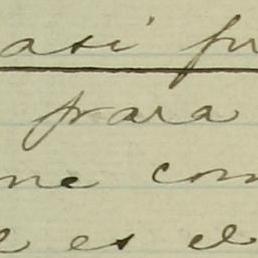 asi fu
para
ne com
e es el